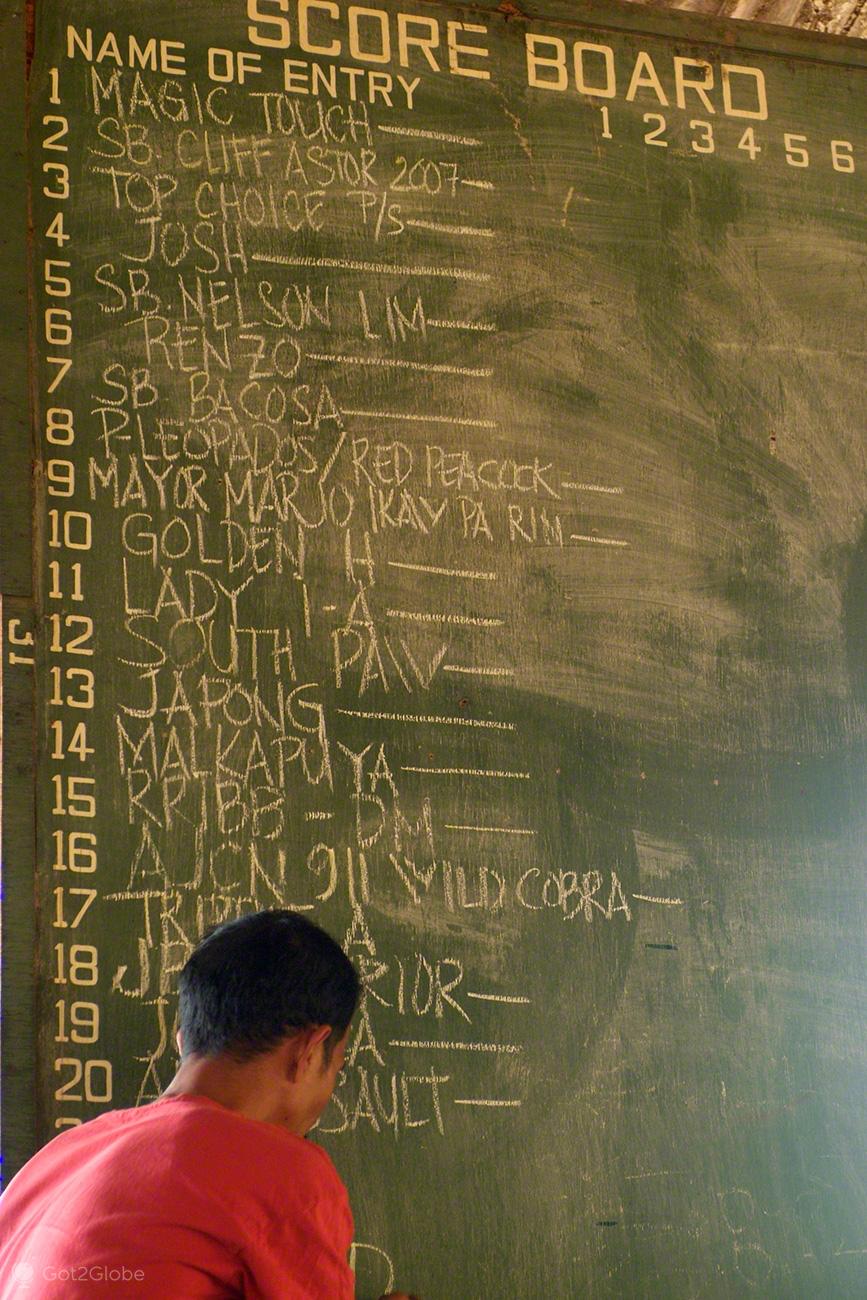 SCORE BOARD
NAME OF ENTRY
1 2 3 4 5 6
1 MAGIC TOUCH
2 SB. CLIFF ASTOR 2007
3 TOP CHOICE P/S
4 JOSH
5 SB. NELSON LIM
6 RENZO
7 SB BACOSA
8 P-LEOPADOS/RED PEACOCK
9 MAYOR MARJO IKAY PA RIN
10 GOLDEN H
11 LADY I-A
12 SOUTH PAW
13 JAPONG
14 MALKAPU YA
15 RRJBB - DM
16 AJCN 911 WILD COBRA
17
18
19
20
31
Got2Globe